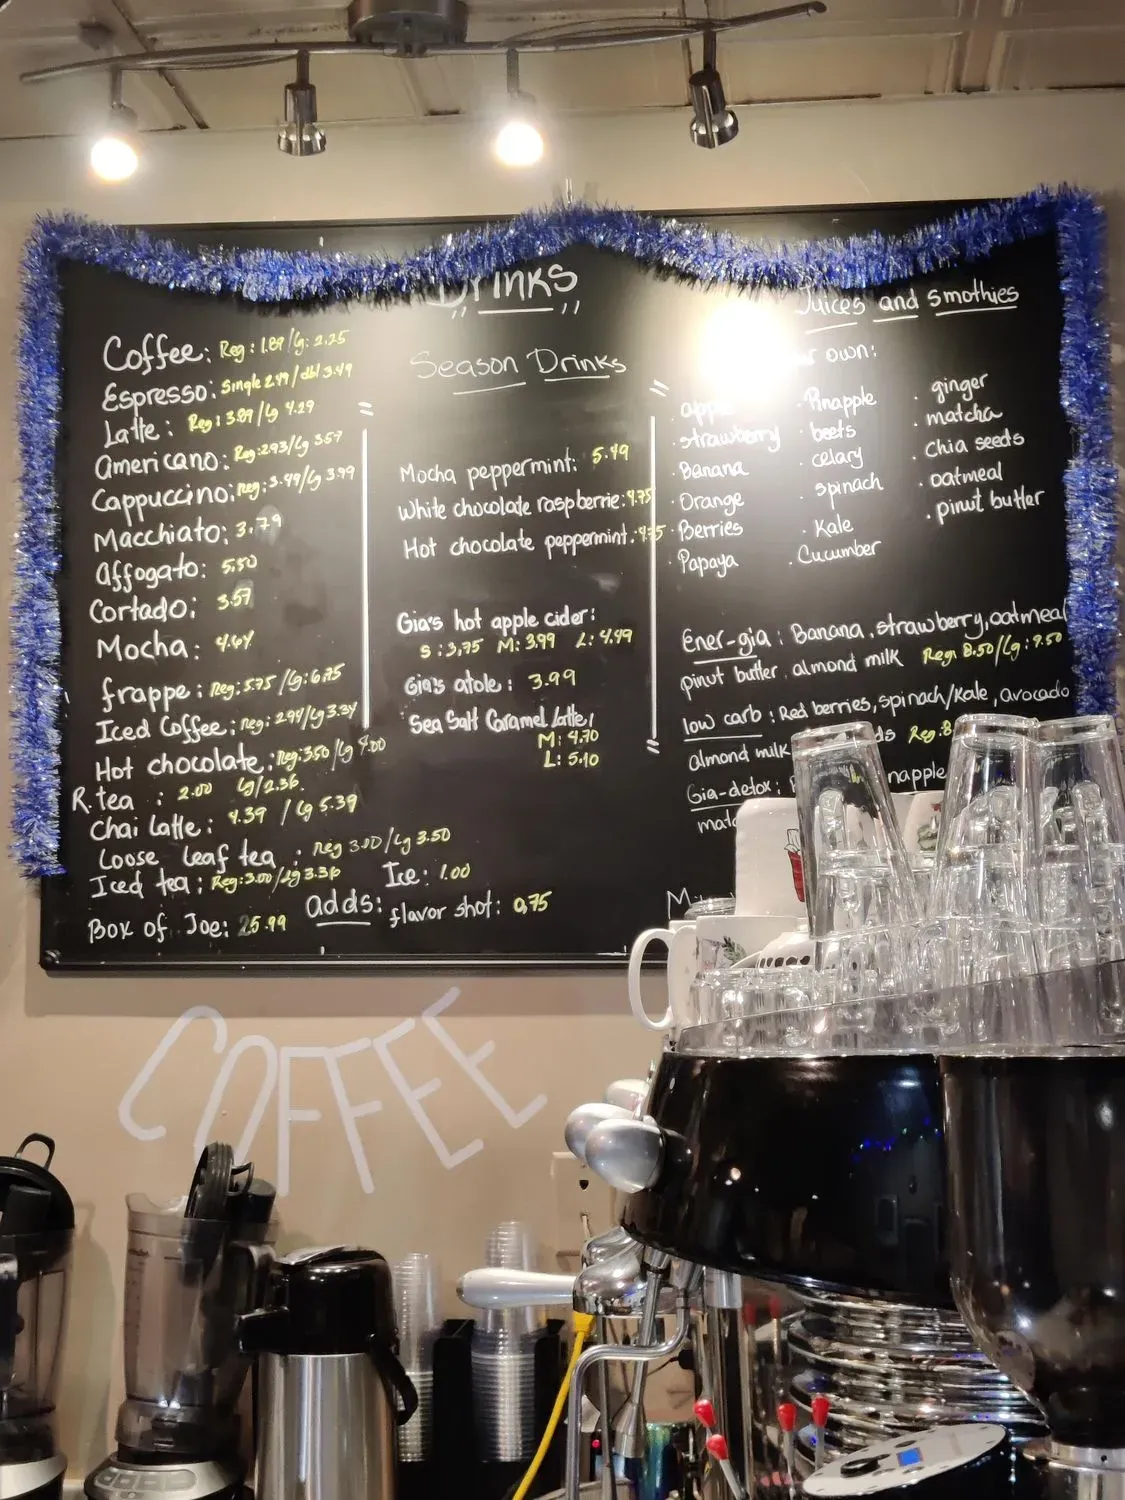 Drinks
Coffee: Reg: 1.89/lg: 2.25
Espresso: Single 2.49/dbl 3.49
Latte: Reg: 3.89/lg 4.29
Americano: Reg: 2.93/Lg 3.57
Cappuccino: Reg: 3.49/Lg 3.99
Macchiato: 3.79
Affogato: 5.50
Cortado: 3.57
Mocha: 4.64
frappe: Reg: 5.75/Lg: 6.75
Iced Coffee: Reg: 2.94/Lg 3.34
Hot chocolate: Reg: 3.50/Lg 4.00
R. tea: 2.00 Lg/2.36
Chai Latte: 4.39 / Lg 5.39
Loose leaf tea: Reg 3.00/Lg 3.50
Iced tea: Reg: 3.00/Lg 3.36
Ice: 1.00
Box of Joe: 25.99
adds: flavor shot: 0,75
Season Drinks
Mocha peppermint: 5.49
White chocolate raspberrie: 4.75
Hot chocolate peppermint: 4.75
Gia's hot apple cider:
S: 3.75 M: 3.99 L: 4.49
Gia's atole: 3.99
Sea Salt Caramel Latte/
M: 4.70
L: 5.10
Juices and Smothies
own:
. strawberry
. Banana
. Orange
. Berries
. Papaya
. Pinapple
. beets
. celary
. spinach
. Kale
. Cucumber
. ginger
. matcha
. Chia seeds
. oatmeal
. pinut butter
Ener-gia: Banana, strawberry, oatmeal
pinut butter, almond milk Reg: 8.50/Lg: 9.50
low carb: Red berries, spinach/Kale, avocado
almond milk
Gia-detox:
COFFEE